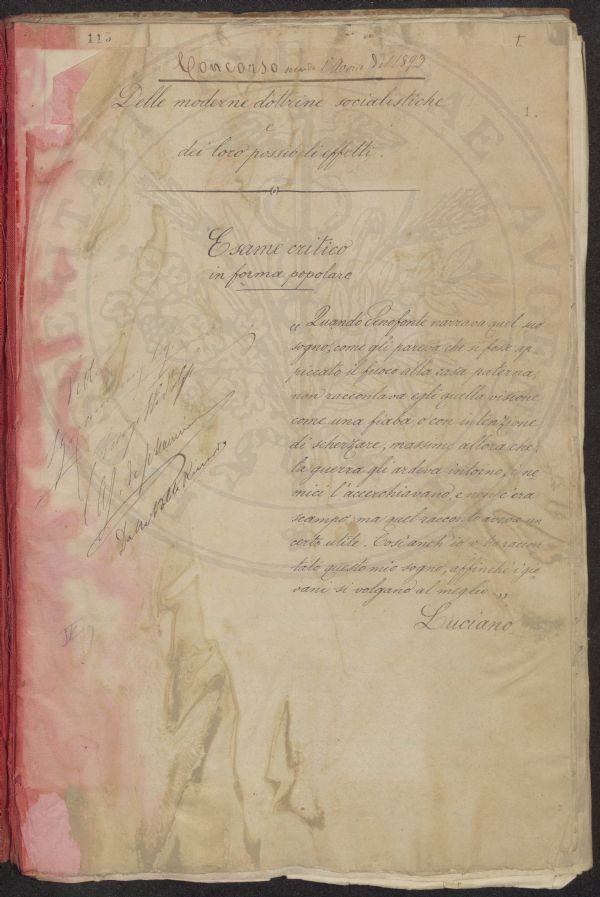 115
1
Concorso 1893
1.
Delle moderne dottrine socialistiche
e
dei loro possibili effetti.
Esame critico
in forma popolare
" Quando Senofonte narrava quel suo
sogno, come gli pareva che si fosse ap-
piccato il fuoco alla casa paterna,
non raccontava egli quella visione
come una fiaba, o con intenzione
di scherzare, massime allora che
la guerra gli ardeva intorno, i ne
mici l'accerchiavano, e non c'era
scampo; ma quel racconto aveva un
certo utile. Così anch'io v'ho raccon
tato questo mio sogno, affinchè i gio
vani si volgano al meglio "
Luciano
IV